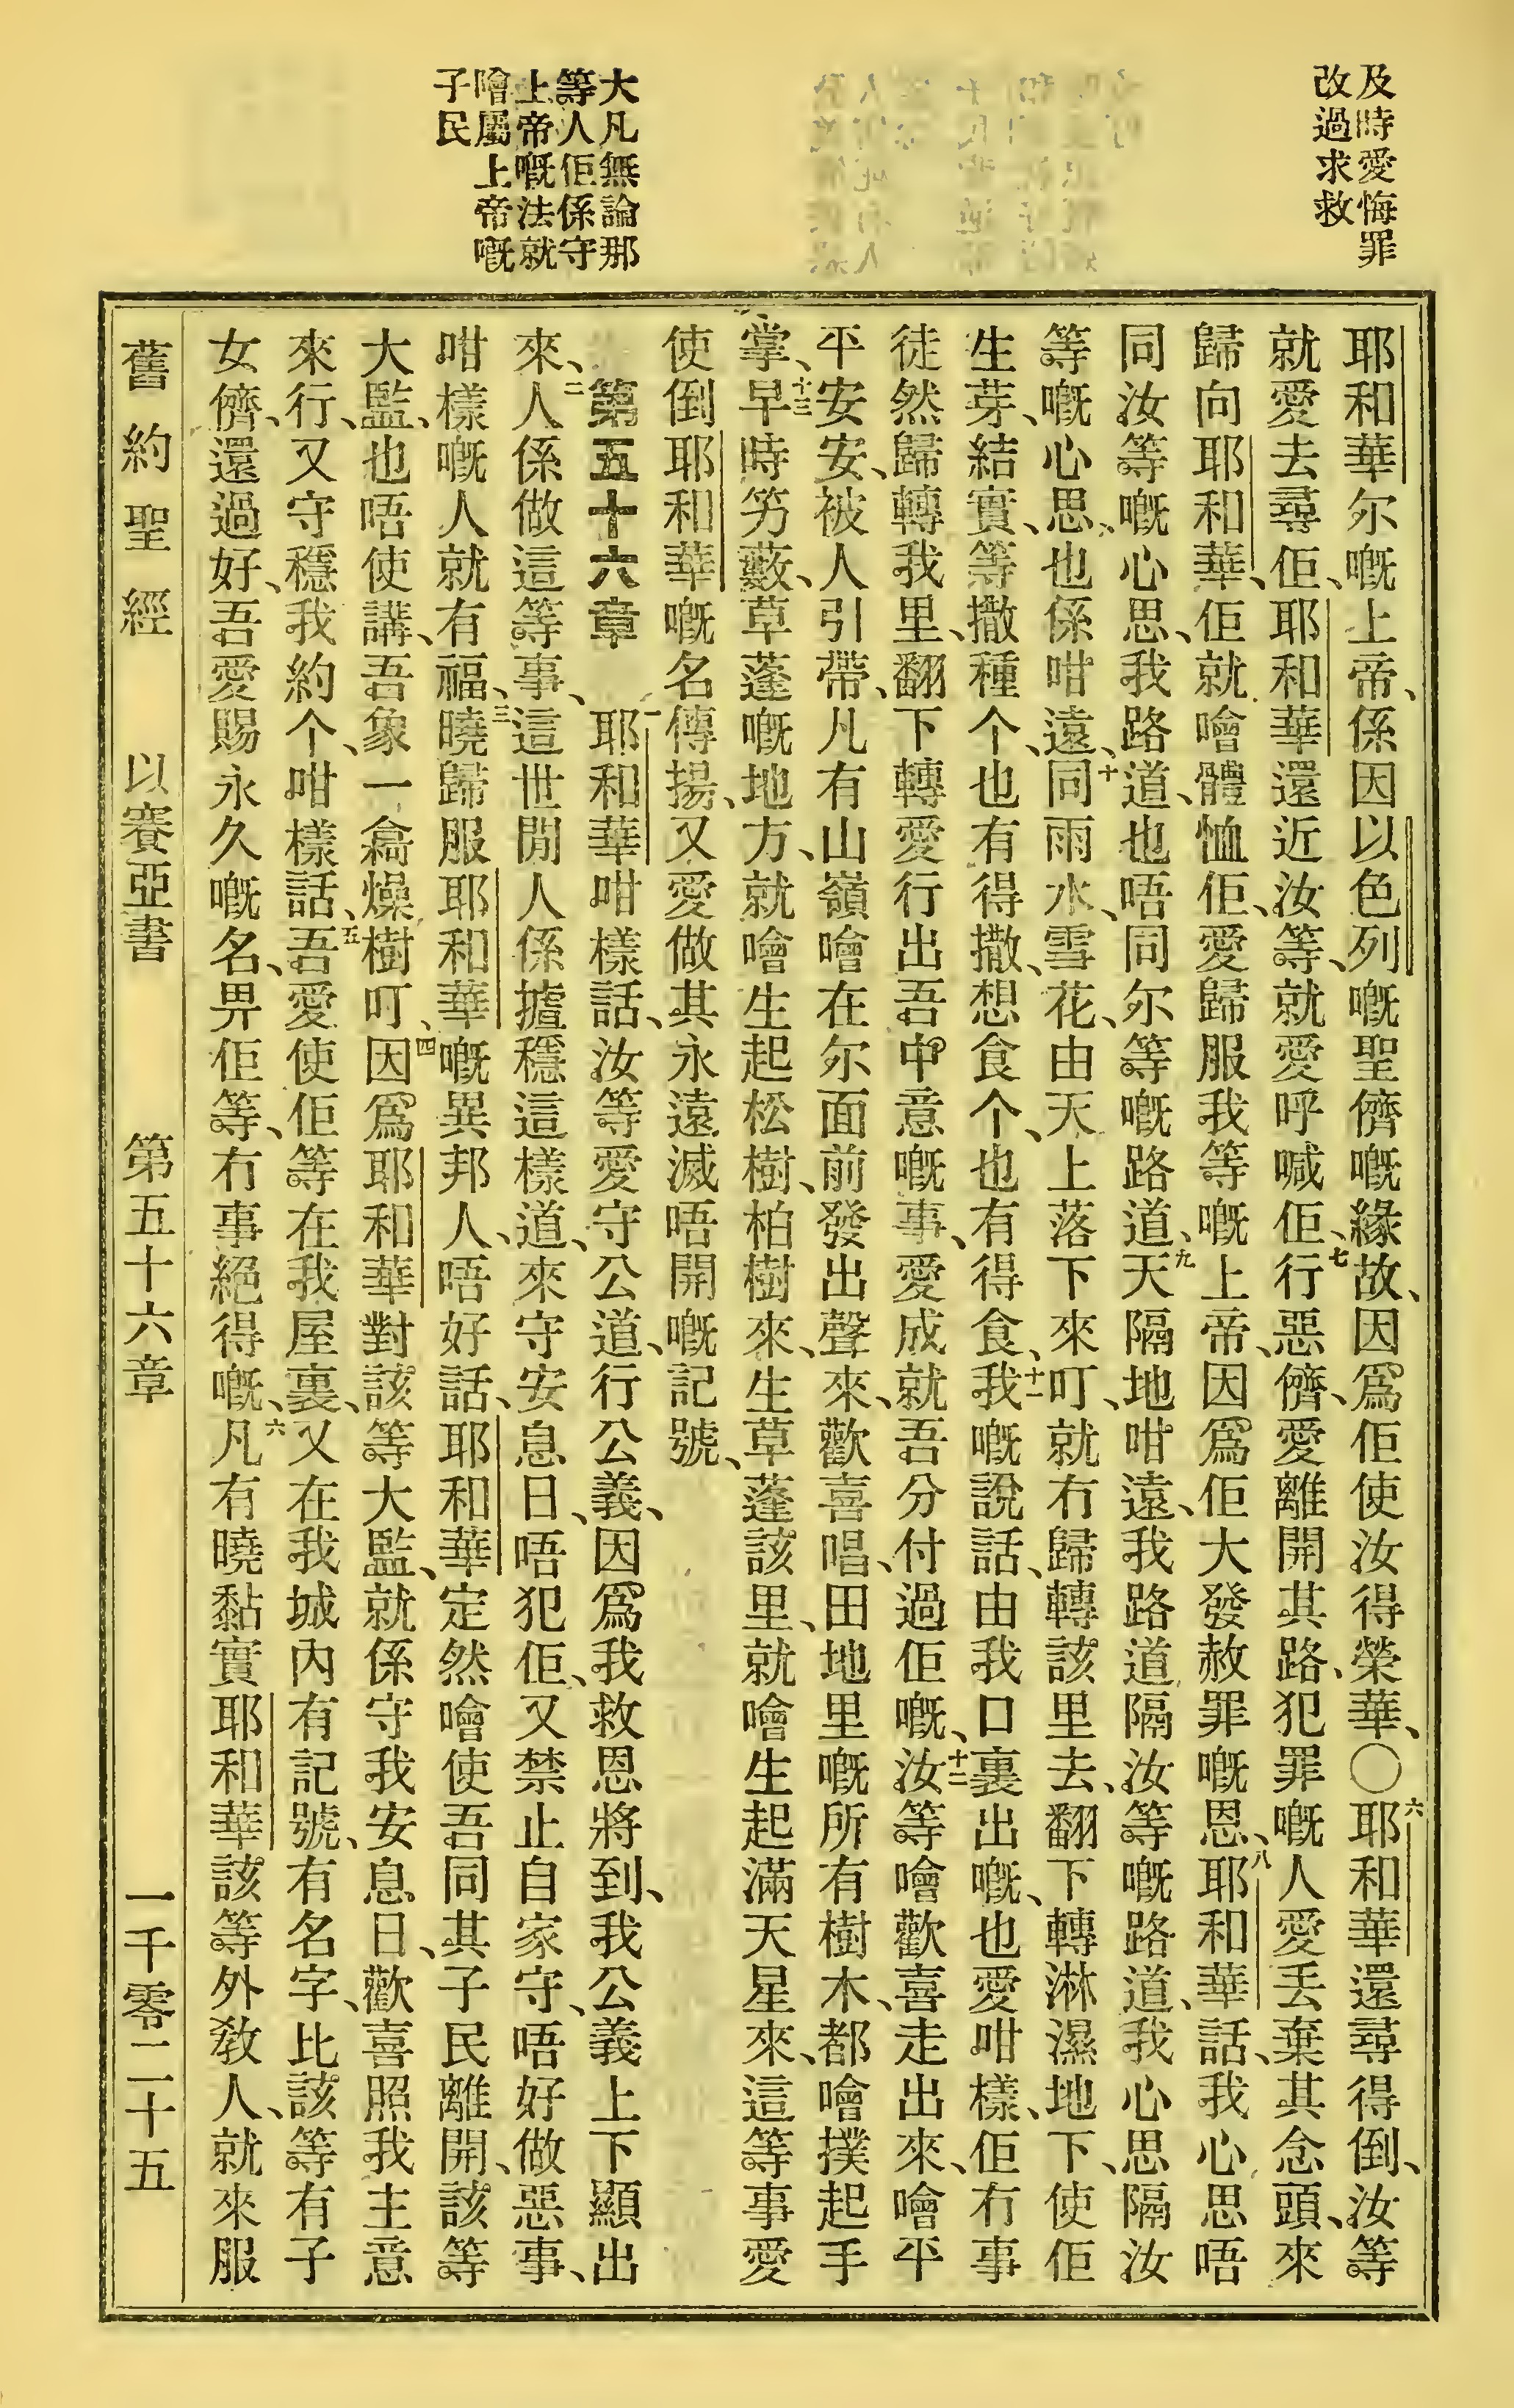 及時愛悔罪
改過求救
大凡無論那
等人佢係守
上帝嘅法就
噲屬上帝嘅
子民
耶和華尔嘅上帝、係因以色列嘅聖儕嘅緣故、因爲佢使汝得榮華、〇六耶和華還尋得倒、汝等
就愛去尋佢、耶和華還近汝等、就愛呼喊佢、七行惡儕、愛離開其路、犯罪嘅人愛丢棄其念頭、來
歸向耶和華、佢就噲體恤佢、愛歸服我等嘅上帝、因爲佢大發赦罪嘅恩、八耶和華話、我心思唔
同汝等嘅心思、我路道、也唔同尔等嘅路道、九天隔地咁遠、我路道隔汝等嘅路道、我心思隔汝
等嘅心思、也係咁遠、十同雨水、雪花、由天上落下來叮、就冇歸轉該里去、翻下轉淋濕地下、使佢
生芽、結實、等撒種个、也有得撒、想食个、也有得食、十一我嘅說話、由我口裏出嘅、也愛咁樣、佢冇事
徒然歸轉我里、翻下轉愛行出吾中意嘅事、愛成就吾分付過佢嘅、十二汝等噲歡喜走出來、噲平
平安安、被人引帶、凡有山嶺噲在尔面前發出聲來、歡喜唱、田地里嘅所有樹木、都噲撲起手
掌、十三早時竻藪、草蓬嘅地方、就噲生起松樹、柏樹來、生草蓬該里、就噲生起滿天星來、這等事愛
使倒耶和華嘅名傳揚、又愛做其永遠滅唔開嘅記號、
第五十六章　一耶和華咁樣話、汝等愛守公道、行公義、因爲我救恩將到、我公義上下顯出
來、二人係做這等事、這世間人係摣穩這樣道、來守安息日、唔犯佢、又禁止自家守、唔好做惡事、
咁樣嘅人就有福、三曉歸服耶和華嘅異邦人、唔好話、耶和華定然噲使吾同其子民離開、該等
大監、也唔使講、吾象一㩧燥樹叮、四因爲耶和華對該等大監、就係守我安息日、歡喜照我主意
來行、又守穩我約个、咁樣話、五吾愛使佢等在我屋裏、又在我城內有記號、有名字、比該等有子
女儕、還過好、吾愛賜永久嘅名、畀佢等、冇事絕得嘅、六凡有曉黏實耶和華該等外敎人、就來服
舊約聖經　以賽亞書　第五十六章　一千零二十五